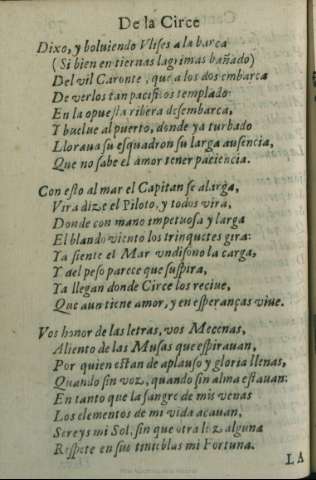 De la Circe
Dixo, y boluiendo Vlises a la barca
(Si bien en tiernas lagrimas bañado)
Del vil Caronte, que a los dos embarca
De verlos tan pacificos templado
En la opuesta ribera desembarca,
Y buelue al puerto, donde ya turbado
Lloraua su esquadron su larga ausencia,
Que no sabe el amor tener paciencia.
Con esto al mar el Capitan se alarga,
Vira dize el Piloto, y todos vira,
Donde con mano impetuosa y larga
El blando viento los trinquetes gira:
Ya siente el Mar undisono la carga,
Y del peso parece que suspira,
Ya llegan donde Circe los reciue,
Que aun tiene amor, y en esperanças viue.
Vos honor de las letras, vos Mecenas,
Aliento de las Musas que espirauan,
Por quien estan de aplauso y gloria llenas,
Quando sin voz, quando sin alma estauan:
En tanto que la sangre de mis venas
Los elementos de mi vida acauan,
Sereys mi Sol, sin que otra luz alguna
Respete en sus tinieblas mi Fortuna.
LA